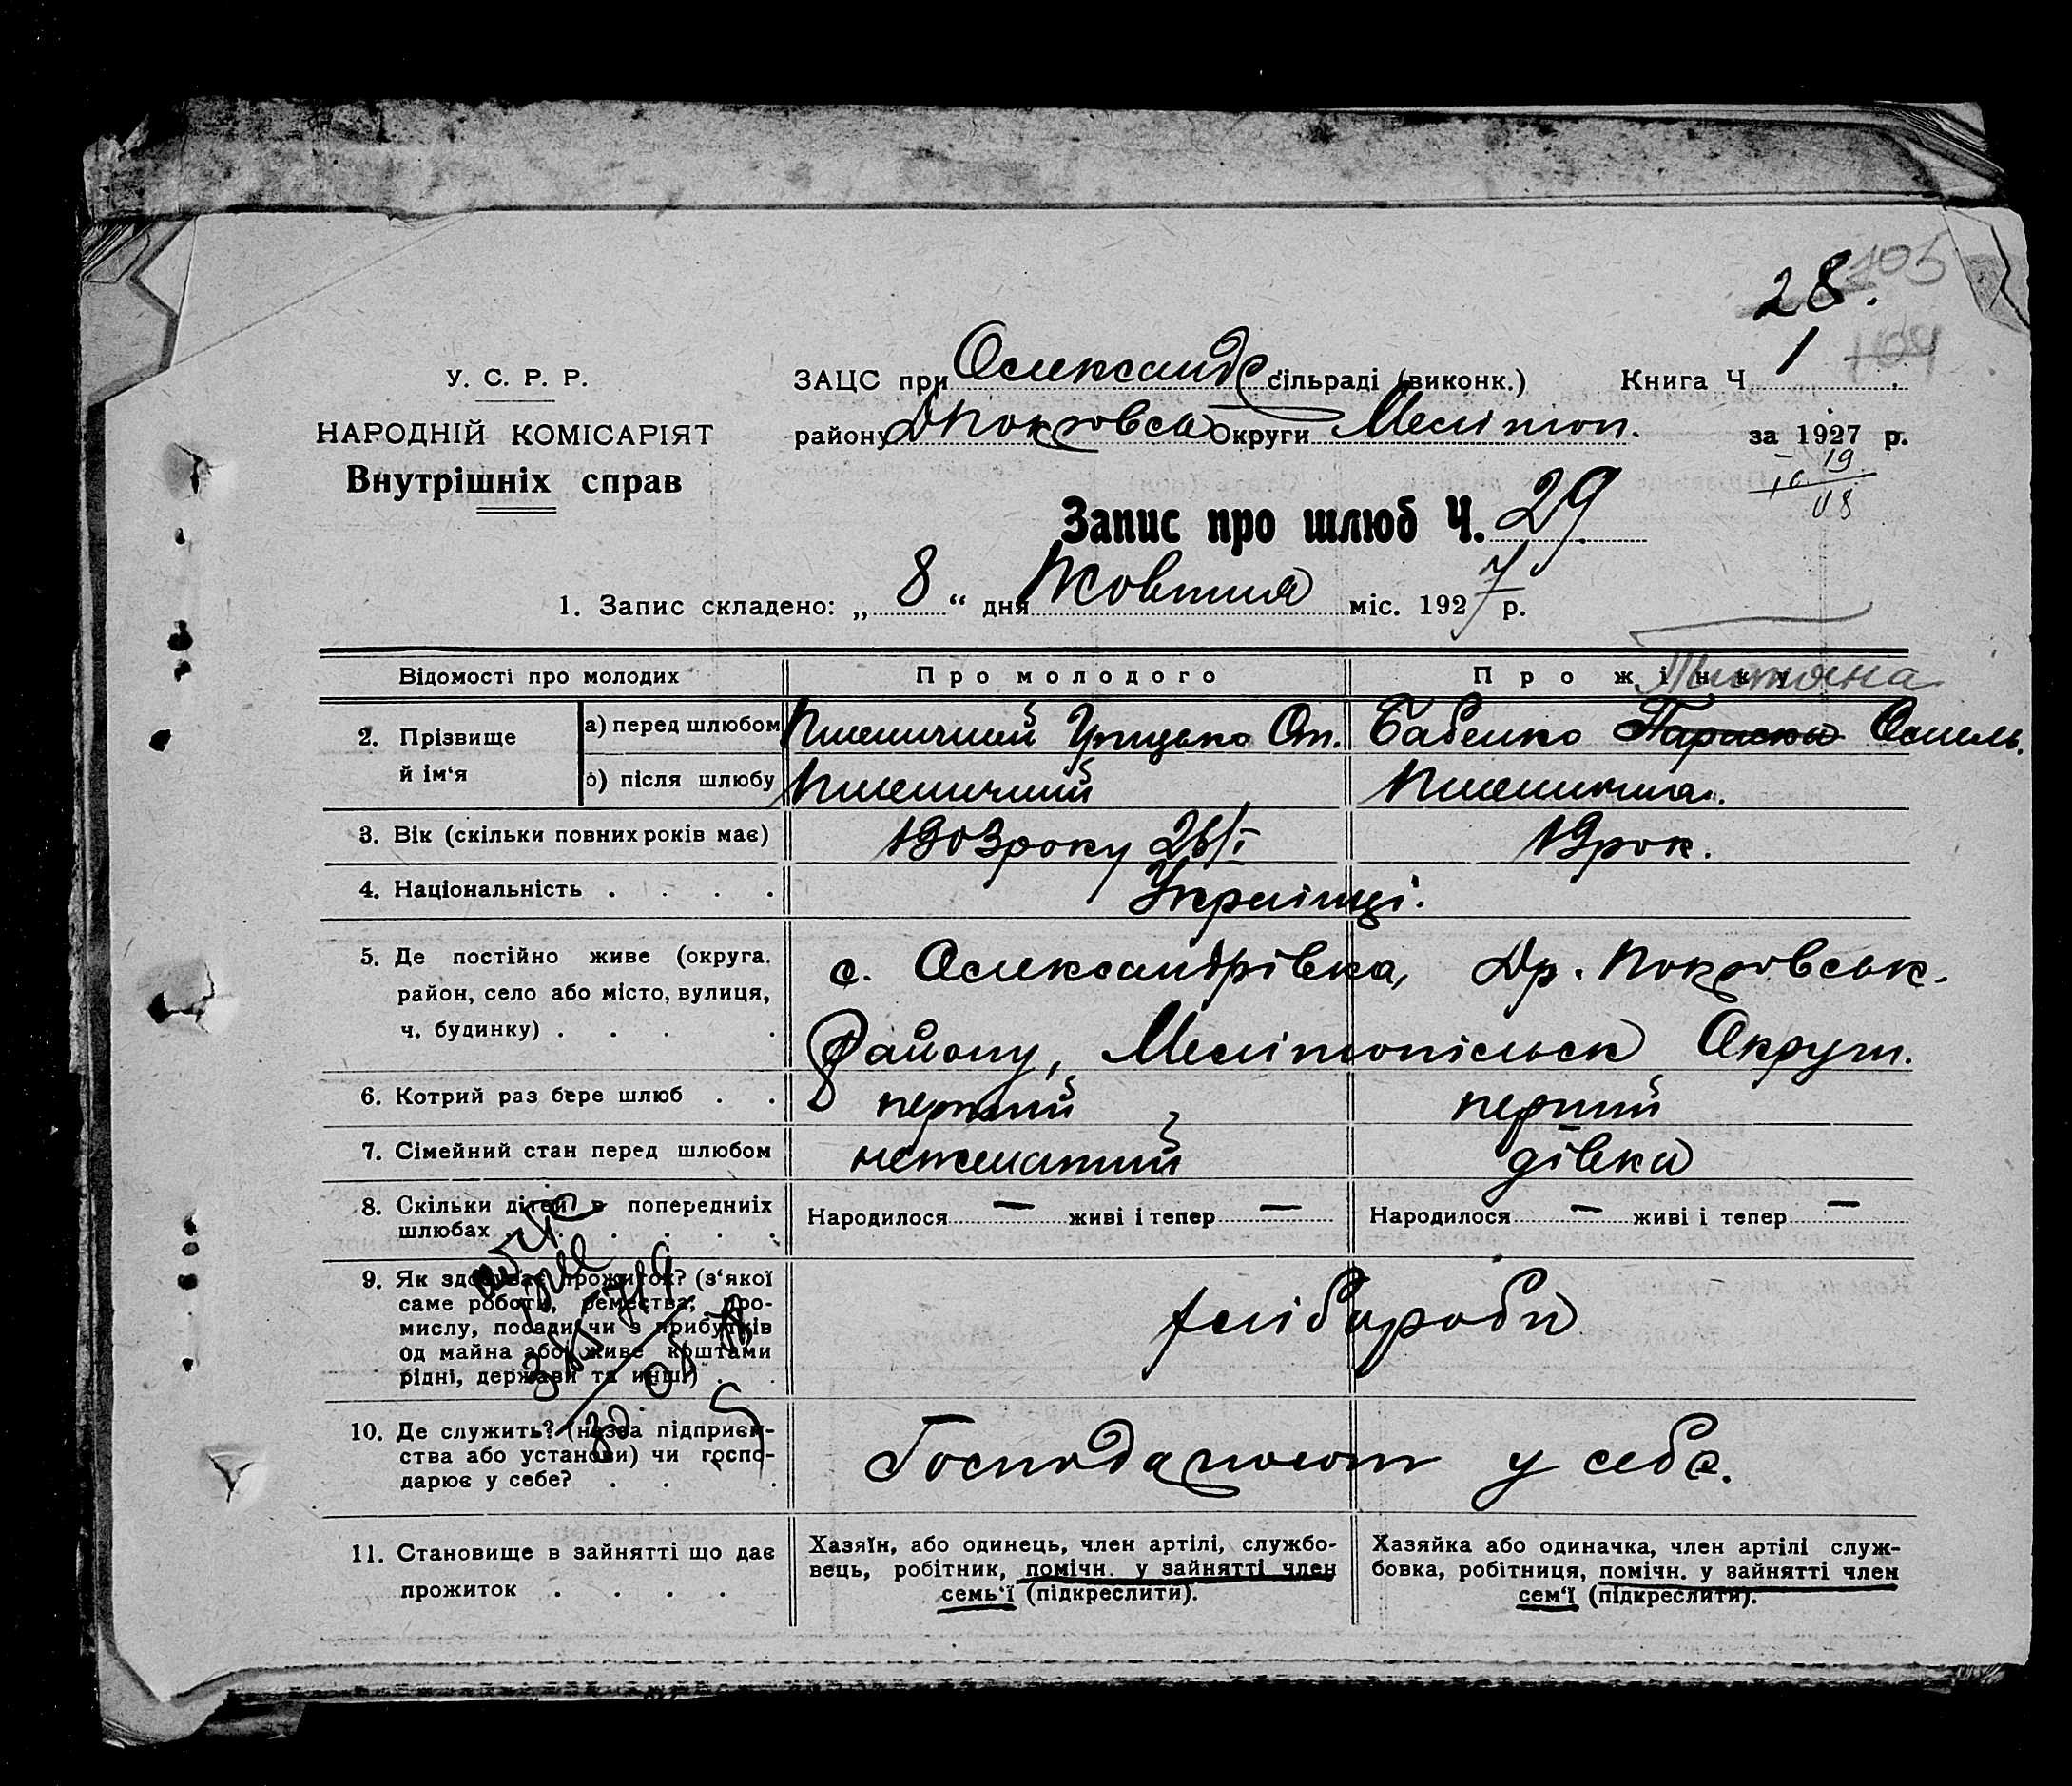 105
28.
104
У. С. Р. Р.
НАРОДНІЙ КОМІСАРІЯТ
Внутрішніх справ
ЗАЦС при Олександр сільраді (виконк.) Книга Ч. 1
району Дпокровськ Округи Мелітоп. за 1927 р.
19
08
Запис про шлюб Ч. 29
1. Запис складено: „ 8 “ дня Жовтня міс. 1927 р.
Відомості про молодих
Про молодого
Про жінку
Тытяна
2. Прізвище й ім‘я
а) перед шлюбом Пшеничний Грицько Оп. Бабенко Параска Омель.
б) після шлюбу Пшеничний Пшенична.
3. Вік (скільки повних років має) 1903 року 26/I 19 рок.
4. Національність . . . . Українці.
5. Де постійно живе (округа, район, село або місто, вулиця, ч. будинку) . . . .
с. Олександрівка, Др. Покровськ.
Району, Мелітопільськ Округи.
6. Котрий раз бере шлюб . . перший перший
7. Сімейний стан перед шлюбом нежонатий дівка
8. Скільки дітей в попередніх шлюбах . . . . . .
Народилося — живі і тепер — Народилося — живі і тепер —
9. Як здобуває прожиток? (з‘якої
саме роботи, ремества, про-
мислу, посади чи з прибутків
од майна або живе коштами
рідні, держави та инші) . .
хлібороби
10. Де служить? (назва підприєм-
ства або установи) чи госпо-
дарює у себе? . . .
Господарюют у себе.
11. Становище в зайнятті що дає
прожиток . . . .
Хазяїн, або одинець, член артілі, службо-
вець, робітник, помічн. у зайнятті член
семь‘ї (підкреслити).
Хазяйка або одиначка, член артілі служ-
бовка, робітниця, помічн. у зайнятті член
сем‘ї (підкреслити).